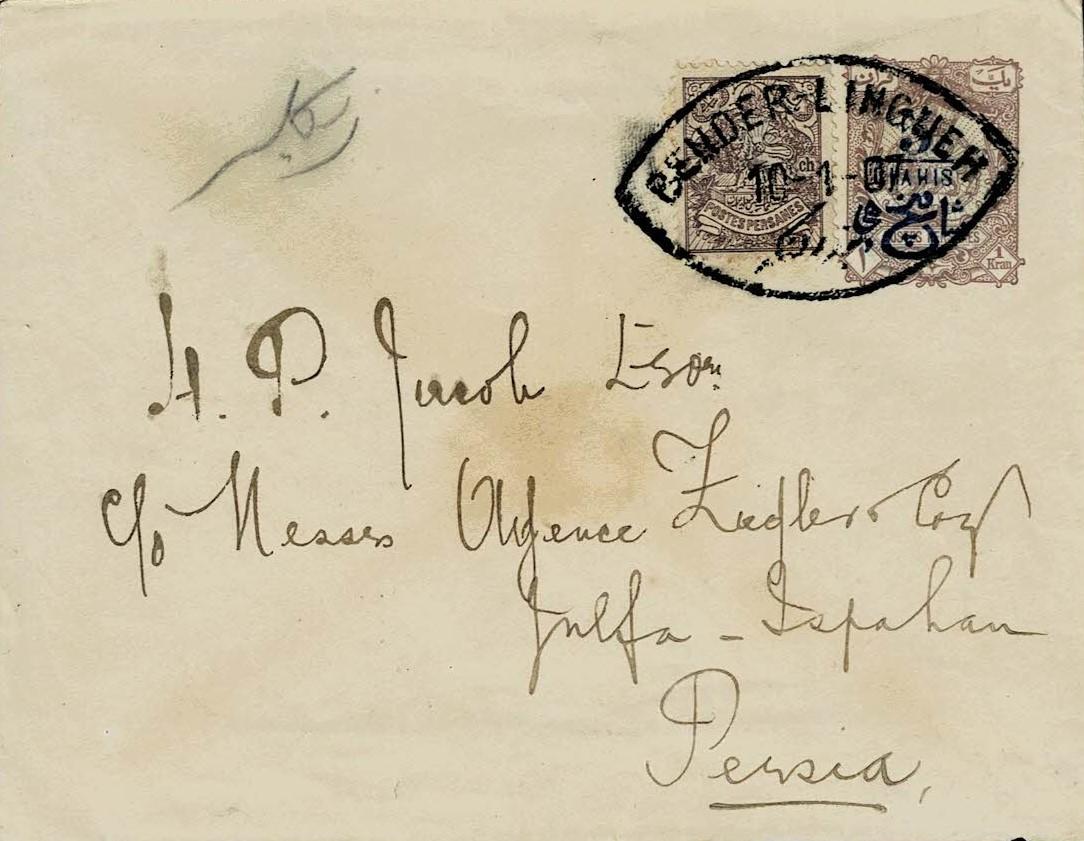 BENDER-LINGUEH
10-1-07
ch
POSTES PERSANES
قران
يك
CHAHIS
1
Kran
H. P. Jacob Esqr.
c/o Messrs Agence Ziegler & Coy
Julfa - Ispahan
Persia,